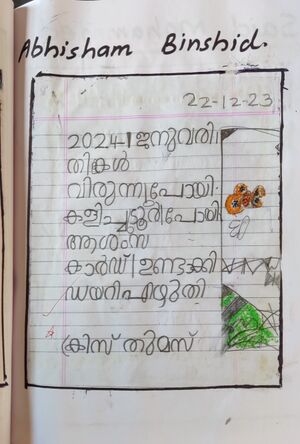 Abhisham Binshid.
22-12-23
2024 ജനുവരി
തിങ്കൾ
വിരുന്നുപോയി.
കളിച്ചുടൂരിപോയി
ആശംസ
കാർഡ് ഉണ്ടാക്കി
ഡയറിഎഴുതി
ക്രിസ് തുമസ്